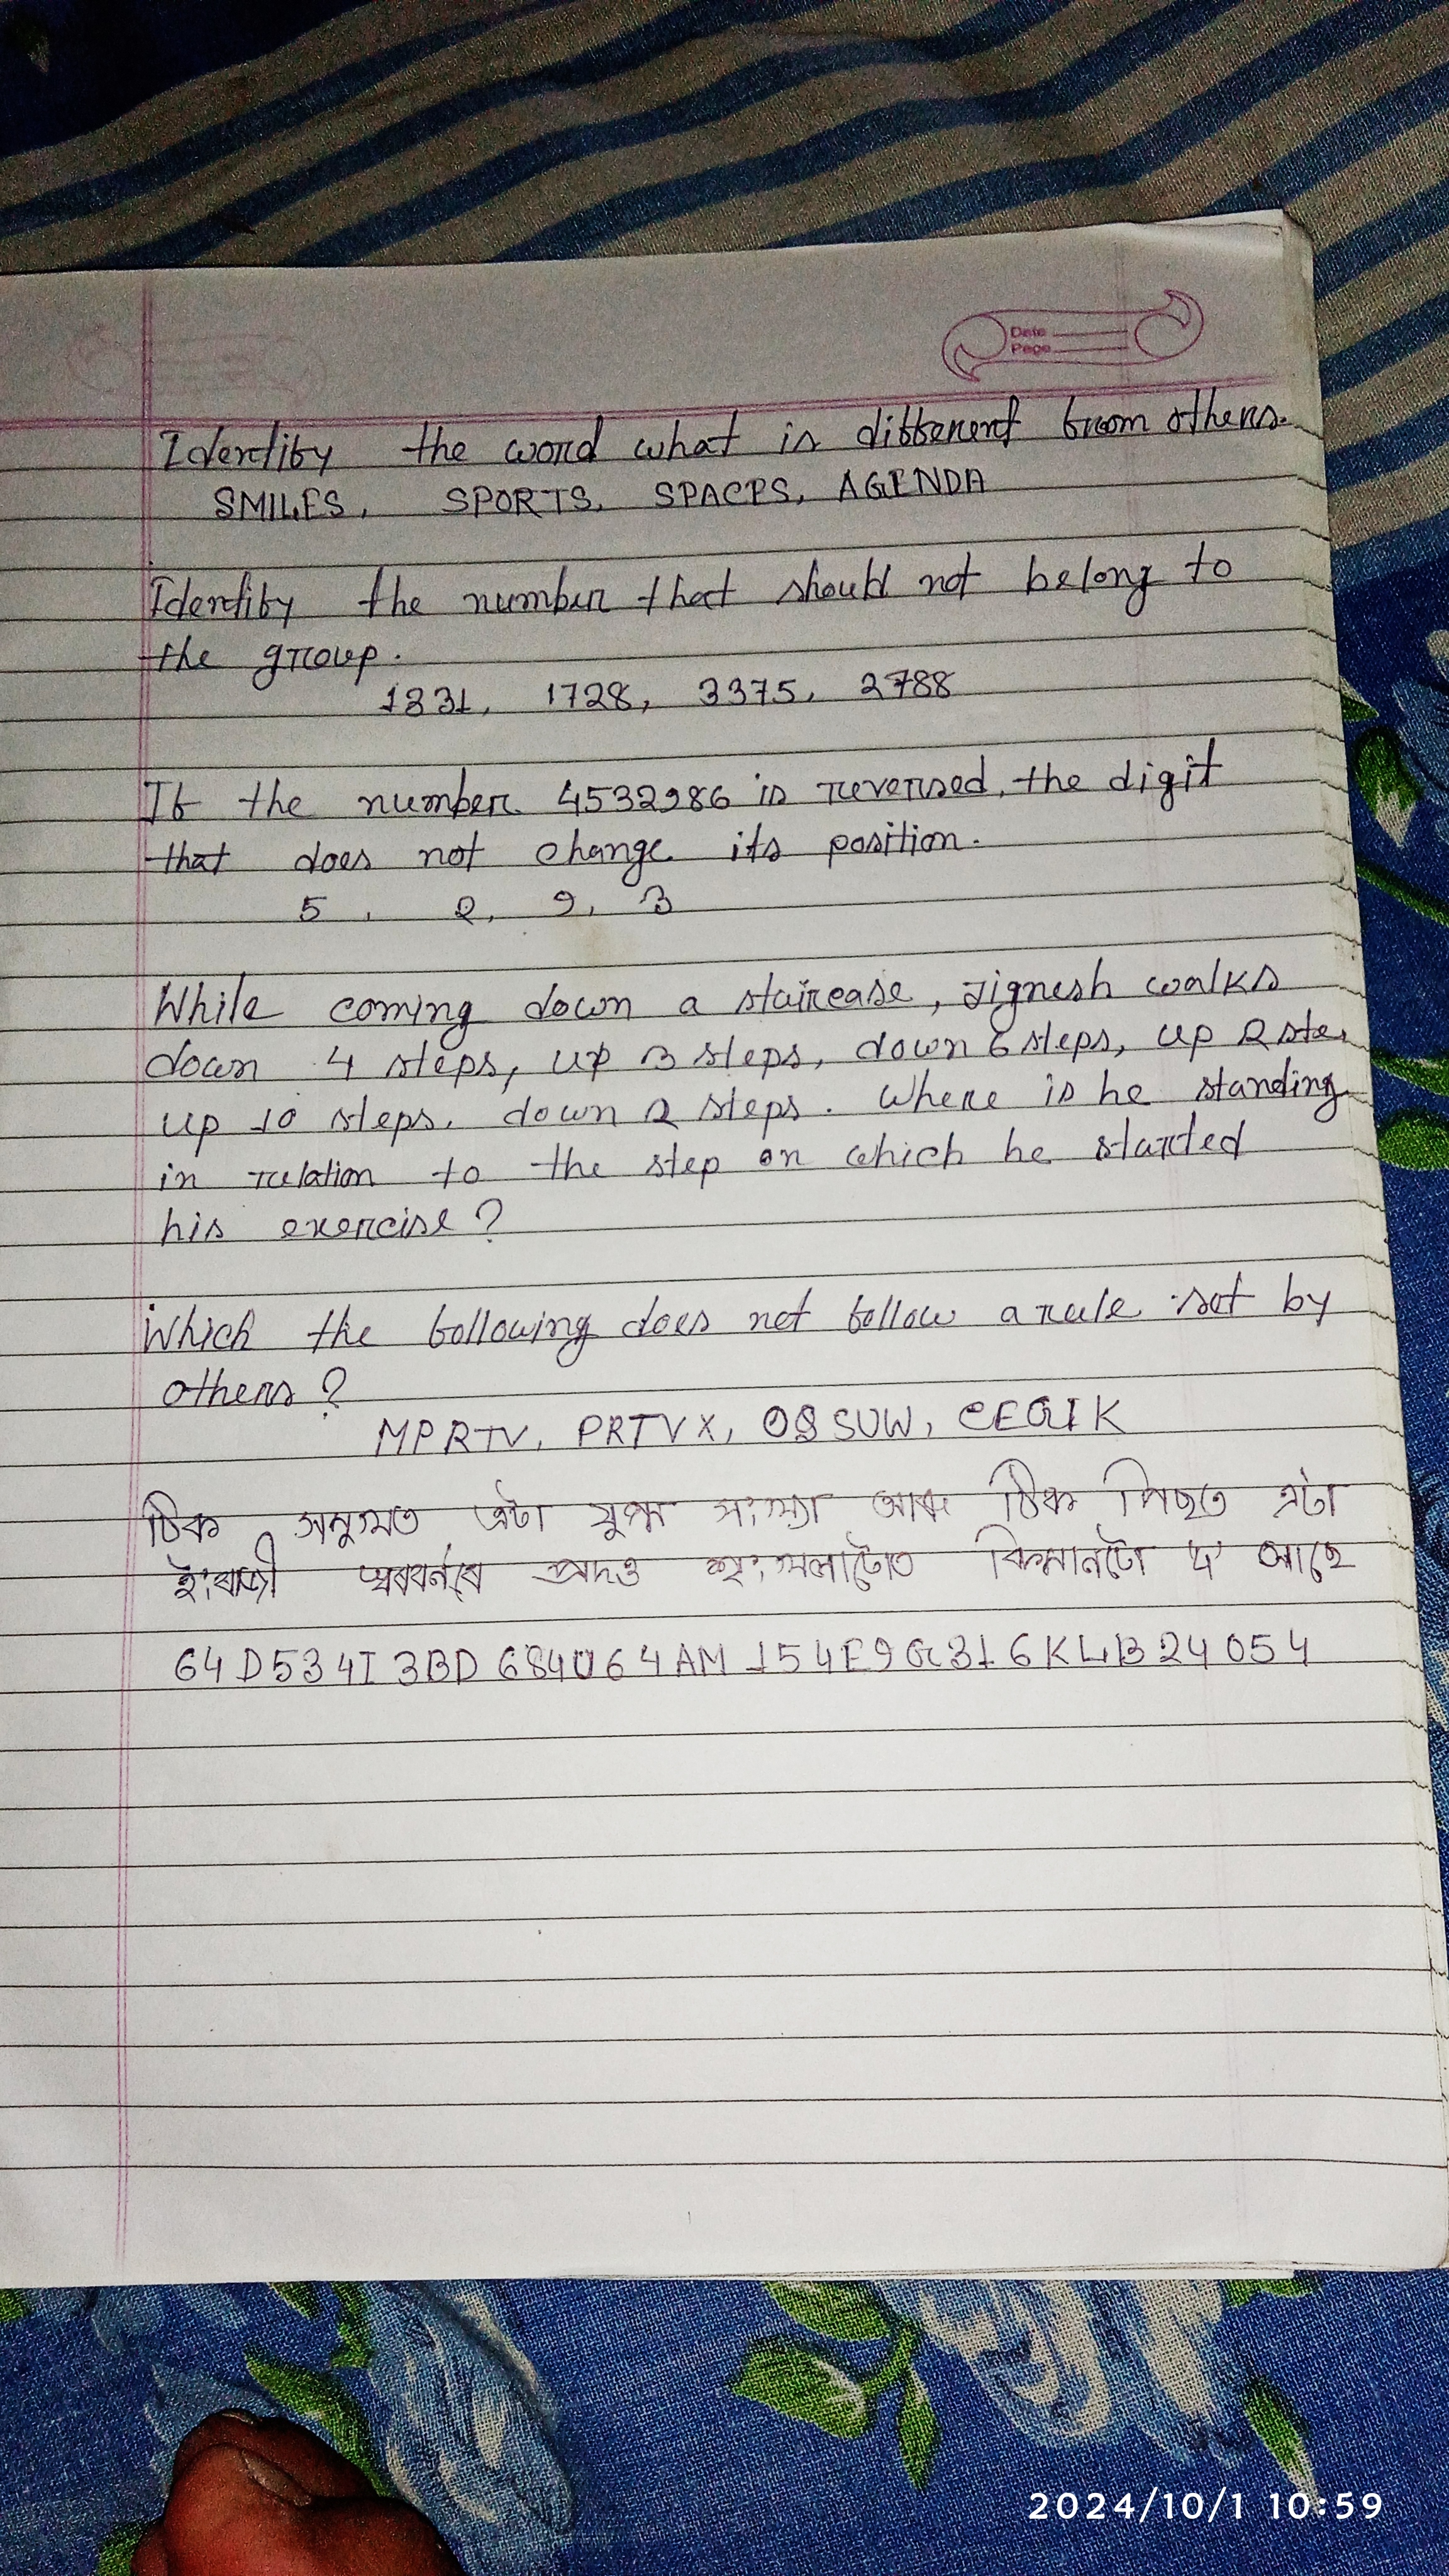 Date
Page
Identify the word what is different from others.
SMILES, SPORTS, SPACES, AGENDA
Identify the number that should not belong to
the group.
1331, 1728, 3375, 2788
If the number 4532986 is reversed, the digit
that does not change its position.
5, 2, 9, 3
While coming down a staircase, Jignesh walks
down 4 steps, up 3 steps, down 6 steps, up 2 ste,
up 10 steps, down 2 steps. Where is he standing
in relation to the step on which he started
his exercise?
Which the following does not follow a rule set by
others?
MPRTV, PRTVX, OQSUW, CEGIK
ঠিক সন্মুখত এটা যুগ্ম সংখ্যা আৰু ঠিক পিছত এটা
ইংৰাজী প্ৰদত্ত শৃংখলাটোত কিমানটো 4 আছে
64D534I3BD684U64AM154E9G316KLB24054
2024/10/1 10:59